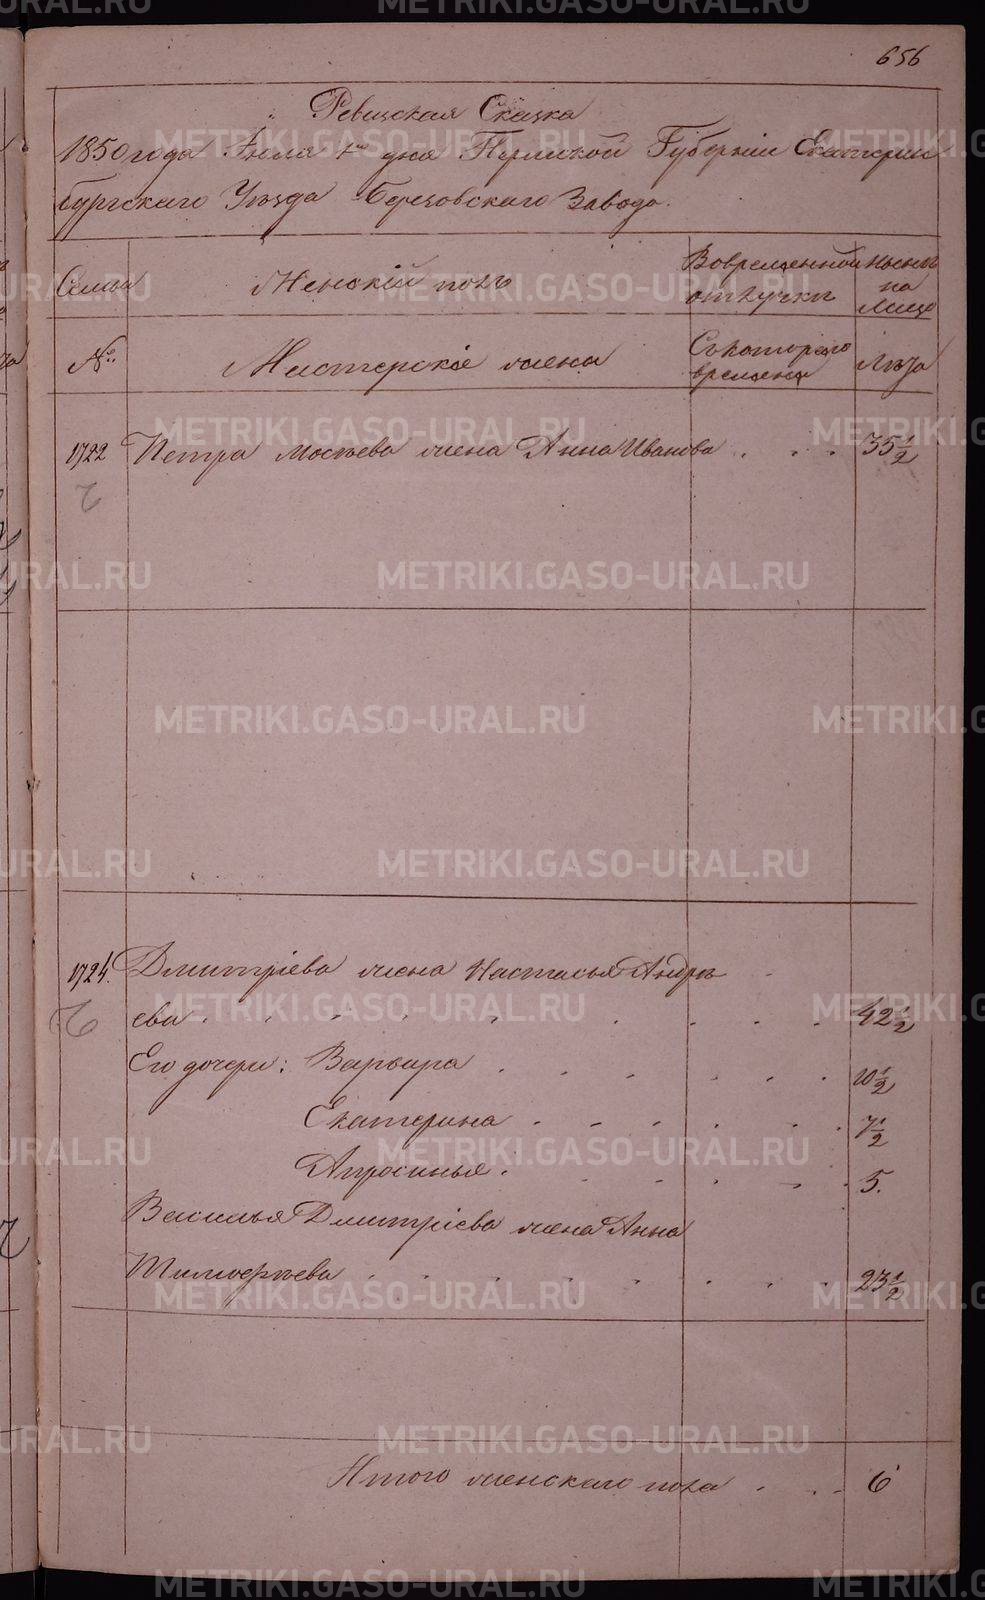 656
Ревизская Сказка
1850 года Іюля 1го дня Пермской Губерніи Екатерин
бургскаго Уѣзда Березовскаго Завода.
Семья
Женскій полъ
Во временной отлучки
Нынѣ на Лицо
№
Мастерскіе жена
Съ котораго времени
Лѣта
1722 Петра Мосѣева жена Анна Иванова . . . 35 1/2
1724. Дмитріева жена Настасья Андрѣ
ева . . . . . 42 1/2
Его дочери: Варвара . . . . . 10 1/2
Екатерина . . . . . 7 1/2
Апросинья . . . . 5.
Василья Дмитріева жена Анна
Тимоѳѣева . . . . . 23 1/2
Итого женскаго пола . . . 6
METRIKI.GASO-URAL.RU